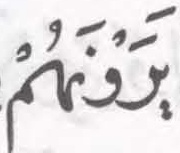 يَرَوْنَهُمْ